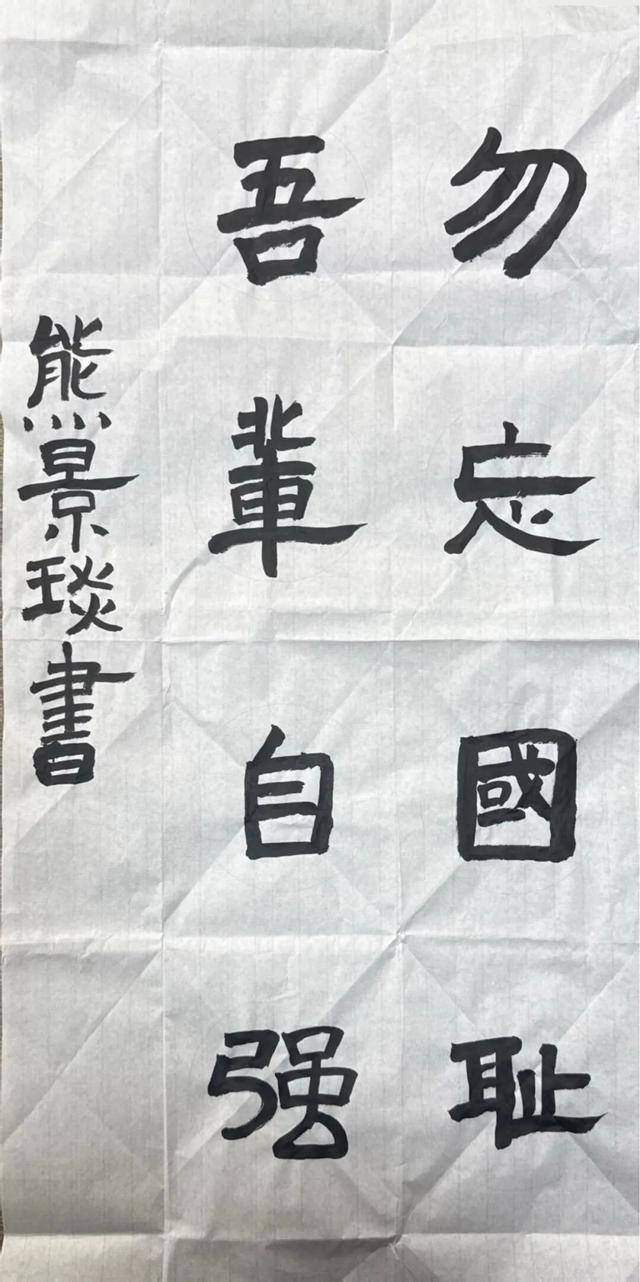 勿忘國耻
吾輩自强
熊景琰書